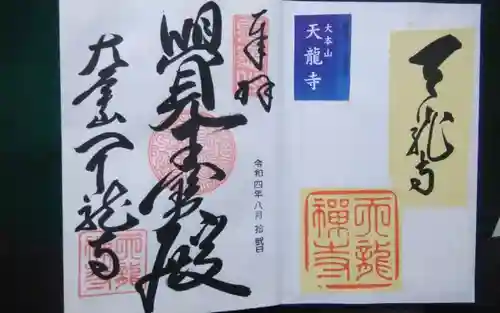 天龍寺
大本山
天龍寺
天龍
禪寺
奉拝
令和四年八月拾弐日
覺王寳殿
大本山天龍寺